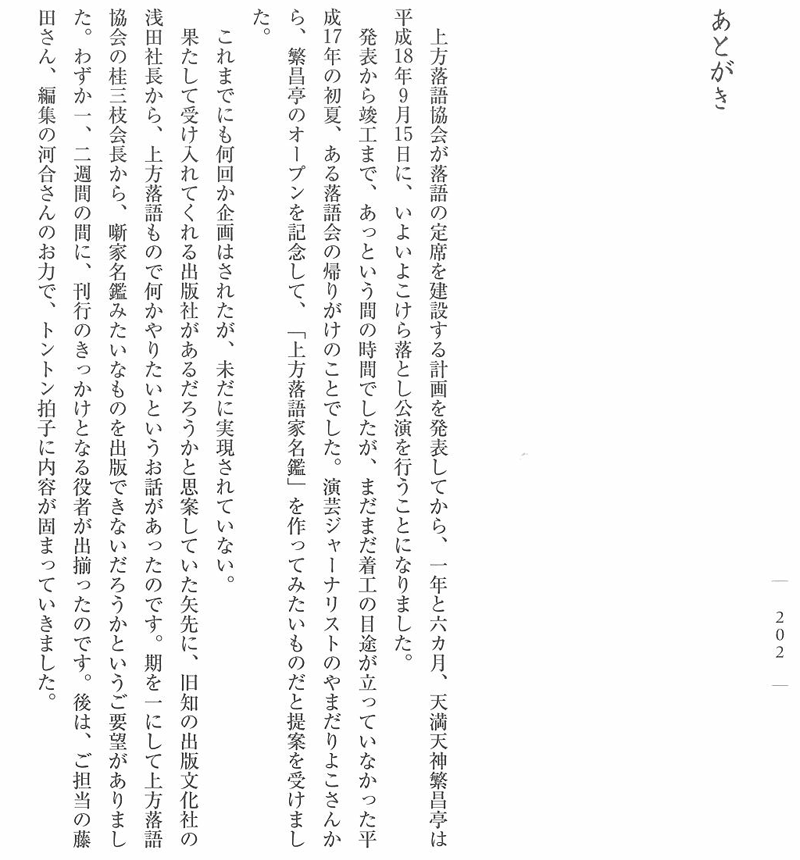 あとがき
上方落語協会が落語の定席を建設する計画を発表してから、一年と六カ月、天満天神繁昌亭は
平成18年9月15日に、いよいよこけら落とし公演を行うことになりました。
発表から竣工まで、あっという間の時間でしたが、まだまだ着工の目途が立っていなかった平
成17年の初夏、ある落語会の帰りがけのことでした。演芸ジャーナリストのやまだりよこさんか
ら、繁昌亭のオープンを記念して、「上方落語家名鑑」を作ってみたいものだと提案を受けまし
た。
これまでにも何回か企画はされたが、未だに実現されていない。
果たして受け入れてくれる出版社があるだろうかと思案していた矢先に、旧知の出版文化社の
浅田社長から、上方落語もので何かやりたいというお話があったのです。期を一にして上方落語
協会の桂三枝会長から、噺家名鑑みたいなものを出版できないだろうかというご要望がありまし
た。わずか一、二週間の間に、刊行のきっかけとなる役者が出揃ったのです。後は、ご担当の藤
田さん、編集の河合さんのお力で、トントン拍子に内容が固まっていきました。
202